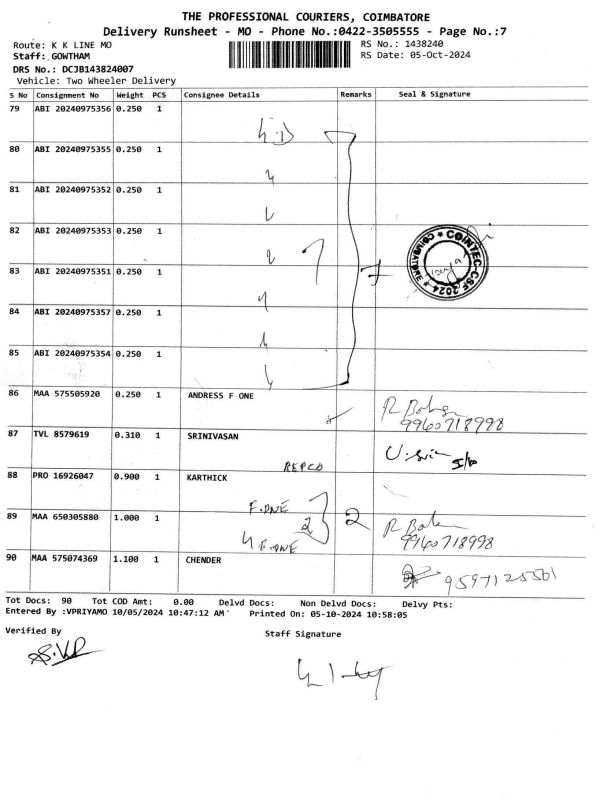 THE PROFESSIONAL COURIERS, COIMBATORE
Delivery Runsheet - MO - Phone No.:0422-3505555 - Page No.:7
Route: K K LINE MO
RS No.: 1438240
Staff: GOWTHAM
RS Date: 05-Oct-2024
DRS No.: DCJB143824007
Vehicle: Two Wheeler Delivery
S No Consignment No Weight PCS Consignee Details Remarks Seal & Signature
79 ABI 20240975356 0.250 1
80 ABI 20240975355 0.250 1
81 ABI 20240975352 0.250 1
82 ABI 20240975353 0.250 1
COINTEC-CSF 2024 * COIMBATORE *
83 ABI 20240975351 0.250 1
7
84 ABI 20240975357 0.250 1
85 ABI 20240975354 0.250 1
86 MAA 575505920 0.250 1 ANDRESS F ONE
9960718998
87 TVL 8579619 0.310 1 SRINIVASAN
REPCO
88 PRO 16926047 0.900 1 KARTHICK
F.ONE
2 2
89 MAA 650305880 1.000 1
F.ONE
9960718998
90 MAA 575074369 1.100 1 CHENDER
Tot Docs: 90 Tot COD Amt: 0.00 Delvd Docs: Non Delvd Docs: Delvy Pts:
Entered By :VPRIYAMO 10/05/2024 10:47:12 AM Printed On: 05-10-2024 10:58:05
Verified By
Staff Signature